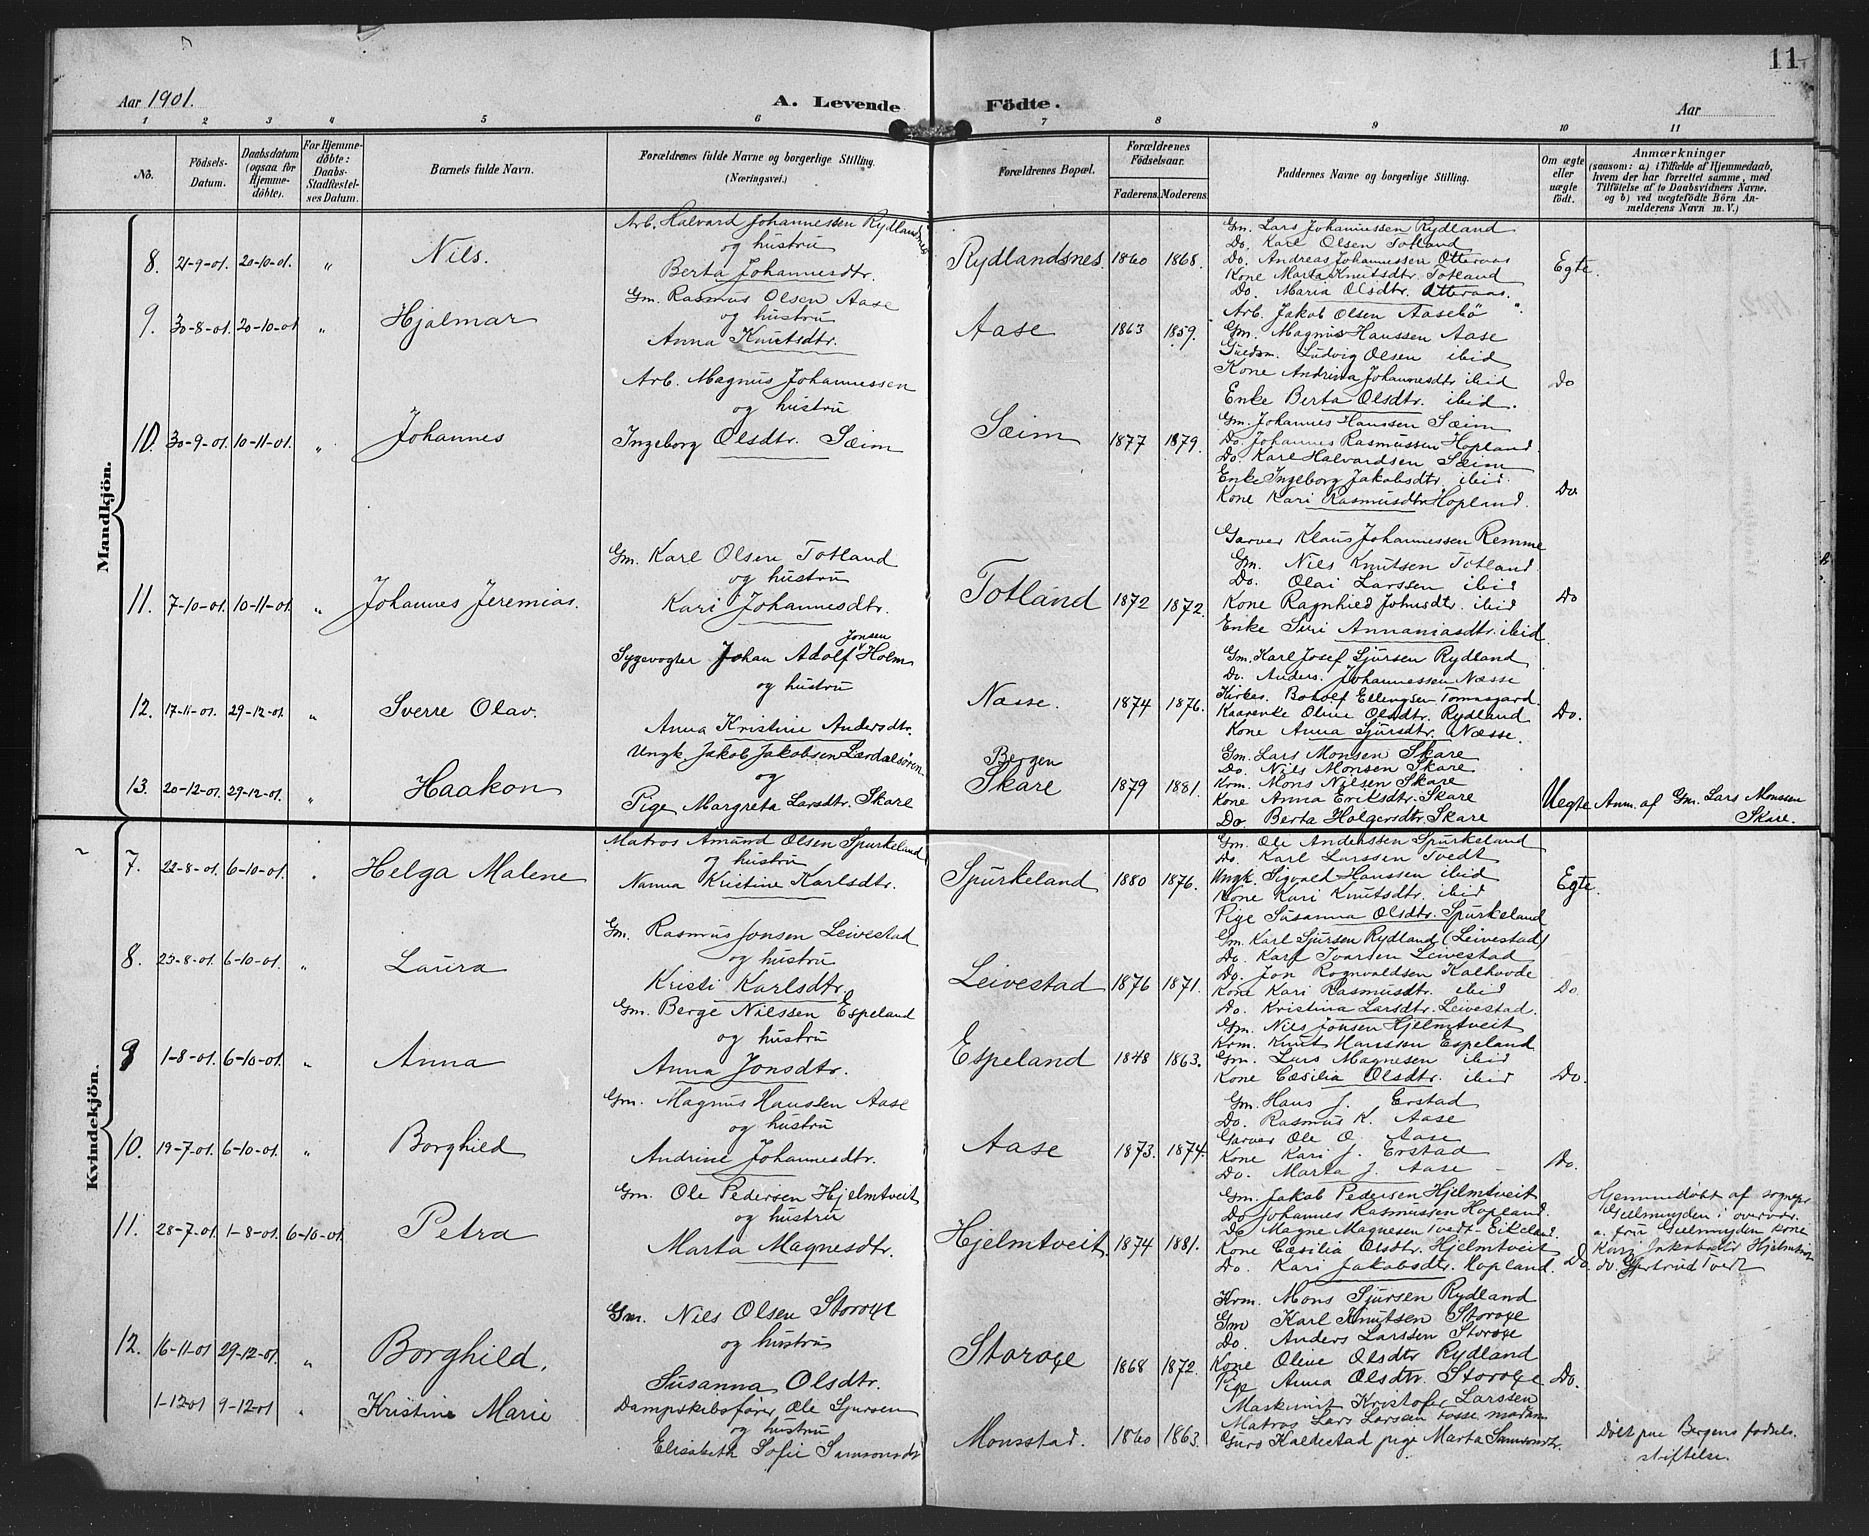 11
Aar 1901. A. Levende Födte. Aar
1 2 3 4 5 6 7 8 9 10 11
No. Födsels-Datum. Daabsdatum (ogsaa for Hjemme-döbte). For Hjemme-döbte: Daabs-Stadfæstel-ses Datum. Barnets fulde Navn. Forældrenes fulde Navne og borgerlige Stilling. (Næringsvei.) Forældrenes Bopæl. Forældrenes Födselsaar. Faderens. Moderens. Faddernes Navne og borgerlige Stilling. Om ægte eller uægte födt. Anmærkninger (saasom: a) i Tilfælde af Hjemmedaab, hvem der har forrettet samme, med Tilföielse af to Daabsvidners Navne, og b) ved uægtefödte Börn An-melderens Navn m. V.)
Mandkjön.
8. 21-9-01. 20-10-01. " Nils. Arb. Halvard Johannessen Rydlandsnes
og hustru
Berta Johannesdtr. Rydlandsnes. 1860 1868. Egte.
Gm. Lars Johannessen Rydland
Do. Karl Olsen Totland
Do. Andreas Johannessen Otteraas
Kone Marta Knutsdtr. Totland
Do. Maria Olsdtr. Otteraas.
9. 30-8-01. 20-10-01 " Hjalmar Gm. Rasmus Olsen Aase
og hustru
Anna Knutsdtr. Aase 1863 1859. Do
Arb. Jakob Olsen Aasebö
Gm. Magnus Hanssen Aase
Guldsm. Ludvig Olsen ibid
Kone Andrina Johannesdtr ibid
Enke Berta Olsdtr. ibid.
10. 30-9-01. 10-11-01. " Johannes Arb. Magnus Johannessen
og hustru
Ingeborg Olsdtr. Sæim Sæim 1877 1879. Do
Gm. Johannes Hanssen Sæim
Do. Johannes Rasmussen Hopland
Do. Karl Halvardsen Sæim
Enke Ingeborg Jakobsdtr. ibid.
Kone Kari Rasmusdtr Hopland.
11. 7-10-01. 10-11-01. " Johannes Jeremias. Gm. Karl Olsen Totland
og hustru
Kari Johannesdtr. Totland 1872 1872. Do
Garver Klaus Johannessen Remme
Gm. Nils Knutsen Totland
Do. Olai Larssen ibid
Kone Ragnhild Johnsdtr. ibid
Enke Siri Annaniasdtr. ibid
12. 17-11-01. 29-12-01. " Sverre Olav. Sygevogter Johan Adolf Jonsen Holm
og hustru
Anna Kristine Andersdtr. Næsse. 1874 1876. Do.
Gm. Karl Josef Sjursen Rydland
Do. Anders Johannessen Næsse
Kirkes. Botolf Ellingsen Tonnsgard
Kaarenke Oline Olsdtr. Rydland
Kone Anna Sjursdtr. Næsse.
13. 20-12-01. 29-12-01. " Haakon Ungk. Jakob Jakobsen Lærdalsören
og
Pige Margreta Larsdtr. Skare Bergen
Skare 1879 1881. Uegte Anm. af Gm. Lars Monsen Skare.
Gm. Lars Monsen Skare
Do. Nils Monsen Skare
Krm. Mons Nilsen Skare
Kone Anna Eriksdtr. Skare
Do. Berta Holgersdtr. Skare
Kvindekjön.
7. 22-8-01. 6-10-01. Helga Malene Matros Amund Olsen Spurkeland
og hustru
Nanna Kristine Karlsdtr. Spurkeland 1880 1876. Egte.
Gm. Ole Anderssen Spurkeland
Do. Karl Larssen Tvedt
Ungk. Sigvald Hanssen ibid
Kone Kari Knutsdtr. ibid
Pige Susanna Olsdtr. Spurkeland
8. 23-8-01. 6-10-01. " Laura Gm. Rasmus Jonsen Leivestad
og hustru
Kristi Karlsdtr Leivestad 1876 1871. Do.
Gm. Karl Sjursen Rydland (Leivestad)
Do. Karl Ivarsen Leivestad
Do. Jon Rognvaldsen Kalhovde
Kone Kari Rasmusdtr. ibid
Do. Kristina Larsdtr. Leivestad.
9 1-8-01. 6-10-01. " Anna Gm. Berge Nilssen Espeland
og hustru
Anna Jonsdtr. Espeland 1848 1863. Do.
Gm. Nils Jonsen Hjelmtveit
Krm. Knut Hanssen Espeland
Gm. Lars Magnesen ibid
Kone Cæsilia Olsdtr. ibid
10. 19-7-01. 6-10-01. " Borghild Gm. Magnus Hanssen Aase
og hustru
Andrine Johannesdtr. Aase 1873. 1874. Do.
Gm. Hans J. Erstad
Do. Rasmus K. Aase
Garver Ole O. Aase
Kone Kari J. Erstad
Do. Marta J. Aase
11. 28-7-01. 1-8-01. 6-10-01. Petra Gm. Ole Pedersen Hjelmtveit
og hustru
Marta Magnesdtr. Hjelmtveit. 1874 1881. Do.
Gm. Jakob Pedersen Hjelmtveit
Do Johannes Rasmussen Hopland.
Do Magne Magnesen Tvedt-Eikeland
Kone Cæsilia Olsdtr. Hjelmtveit
Do. Kari Jakobsdtr. Hopland.
Hjemmedöbt af sognepr.
Gielmuyden i overvær.
a. fru Gielmuyden kone
Kari Jakobsdtr Hjelmtveit
do. Gjertrud Tvedt
12. 16-11-01 29-12-01. " Borghild. Gm. Nils Olsen Storoge
og hustru
Susanna Olsdtr. Storoge 1868 1872. Do.
Krm. Mons Sjursen Rydland
Gm Karl Knutsen Storoge
Do. Anders Larssen Storoge
Kone Oline Olsdtr Rydland
Pige Anna Olsdtr. Storoge
1-12-01 9-12-01 " Kristine Marie Dampskibsförer Ole Sjursen
og hustru
Elisabeth Sofie Samsonsdtr Monsstad. 1860 1863.
Maskinist Kristofer Larssen
Matros Lars Larsen Fosse madam
Guro Kaldestad pige Marta Samsonsdtr.
Döbt paa Bergens fødsels-
stiftelse.